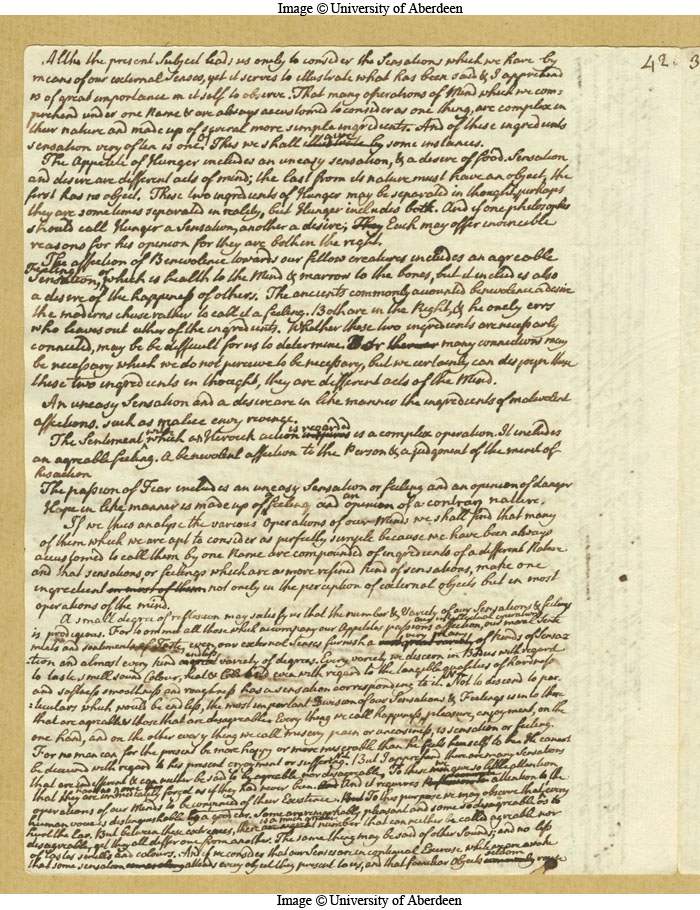 Image © University of Aberdeen
42. 3
Altho the present Subject leads us onely to consider the Sensations which we have by
means of our external Senses, yet it serves to illustrate what has been said & I apprehend
is of great importance in it self to observe. That many operations of Mind which we com-
prehend under one Name & are always accustomed to consider as one thing, are complex in
their nature and made up of several more simple ingredients. And of these ingredients
sensation very often is one. Of this we shall give some instances.
The Appetite of Hunger includes an uneasy sensation, & a desire of food. Sensation
and desire are different acts of mind; the last from its nature must have an object, the
first has no object. These two ingredients of Hunger may be separated in thought, perhaps
they are sometimes separated in reality, but Hunger includes both. And if one philosopher
should call Hunger a Sensation, another a desire; Each may offer invincible
reasons for his opinion for they are both in the right.
The affection of Benevolence towards our fellow creatures includes an agreable
Feeling
Sensation, which is health to the Mind & marrow to the bones, but it includes also
a desire of the happiness of others. The ancients commonly accounted benevolence a desire
the moderns chuse rather to call it a feeling. Both are in the Right, & he onely errs
who leaves out either of the ingredients. Whether these two ingredients are necessarly
connected, may be difficult for us to determine. For there are many connections may
be necessary which we do not perceive to be necessary, but we certainly can disjoyn them
these two ingredients in thought, they are different acts of the Mind.
An uneasy Sensation and a desire are in like manner the ingredients of malevolent
affections. such as malice envy revenge.
The Sentiment with which an Heroick action is regarded is a complex operation. It includes
an agreable feeling. A benevolent affection to the Person & a judgment of the merit of
his action
The passion of Fear includes an uneasy Sensation or feeling and an opinion of danger
Hope in like manner is made up of feeling and an opinion of a contrary nature.
If we thus analyse the various Operations of our Minds we shall find that many
of them which we are apt to consider as perfectly simple because we have been always
accustomed to call them by one Name are compounded of ingredients of a different Nature
and that sensations, or feelings which are a more refind kind of sensations, make one
ingredient not onely in the perception of external objects but in most
operations of the mind.
A small degree of reflexion may satisfy us that the number & Variety of our Sensations & feelings
is prodigious. For to ommit all those which accompany our Appetites passions & affection, our moral Senti
ments and sentiments of Taste, even our external Senses furnish a very great variety of kinds of Sensa-
tion and almost every kind endless variety of degrees. Every variety we discern in Bodies with regard
to taste, smell sound Colour, heat & Cold and even with regard to the tangible qualities of hardness
and softness smoothness and roughness has a sensation corresponding to it. Not to descend to par-
ticulars which would be endless, the most important Division of our Sensations & Feelings is into those
that are agreable & those that are disagreable. Every thing we call happiness, pleasure, enjoyment, on the
one hand, and on the other every thing we call misery, pain or uneasiness, is sensation or feeling.
For no man can for the present be more happy or more miserable than he feels himself to be. He cannot
be deceived with regard to his present enjoyment or suffering. But I apprehend there are many Sensations
that are indifferent & can neither be said to be agreable nor disagreable. To these we give so little attention
that they have no name & are immediately forgot as if they had never been. And it requires attention to the
operations of our Minds to be convinced of their Existence. To this purpose we may observe that every
human voice is distinguishable by a good ear. Some are remarkably pleasant and some so disagreable as to
hurt the Ear. But between these extremes, there is a much greater number that can neither be called agreable nor
disagreable, yet they all differ one from another. The same thing may be said of other Sounds; and no less
of tastes smells and colours. And if we consider that our Senses are in continual Exercise while we are awake
that some sensation attends every object they present to us, and that familiar Objects seldom rouse
Image © University of Aberdeen